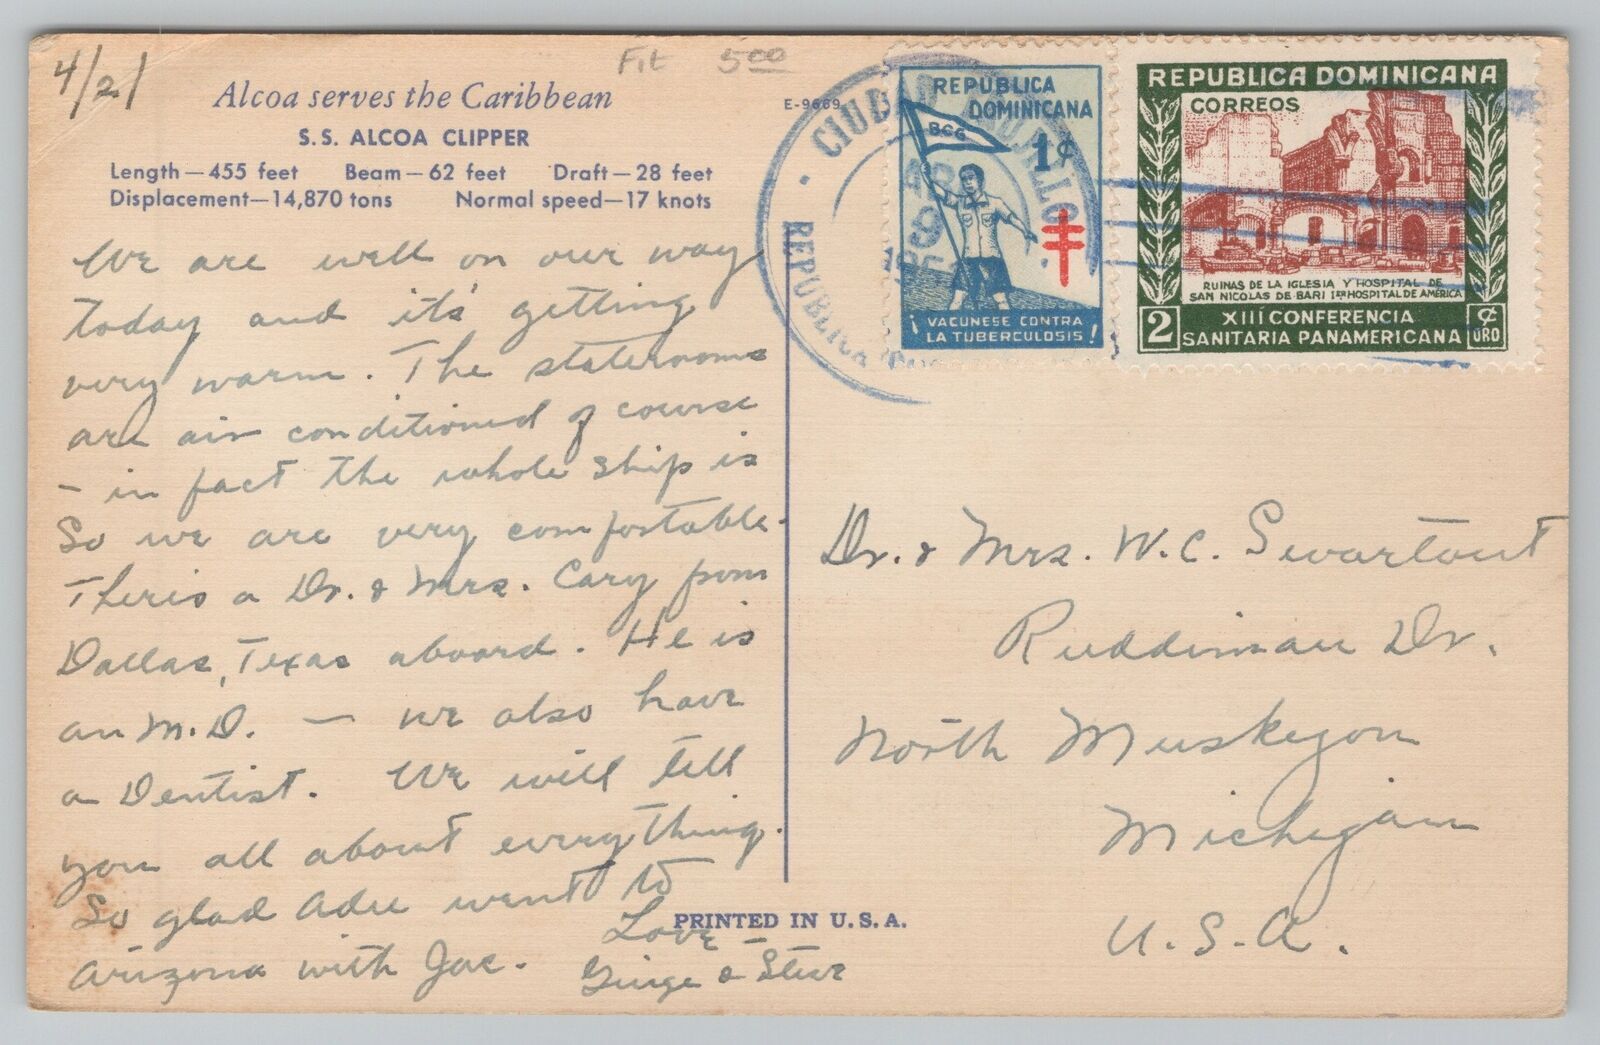 4/21
Fit 5.00
Alcoa serves the Caribbean
S.S. ALCOA CLIPPER
Length—455 feet Beam—62 feet Draft—28 feet
Displacement—14,870 tons Normal speed—17 knots
E-9669
We are well on our way
today and it's getting
very warm. The staterooms
are air conditioned of course
– in fact the whole ship is
So we are very comfortable.
Theris a Dr. & Mrs. Cary from
Dallas, Texas aboard. He is
an M.D. — we also have
a Dentist. We will tell
you all about everything.
So glad Adee went to
Arizona with Jac.
Love –
Ginge & Steve
PRINTED IN U.S.A.
CIUDAD TRUJILLO
REPUBLICA
REPUBLICA
DOMINICANA
BCG
1¢
¡VACUNESE CONTRA
LA TUBERCULOSIS!
REPUBLICA DOMINICANA
CORREOS
RUINAS DE LA IGLESIA Y HOSPITAL DE
SAN NICOLAS DE BARI 1ER HOSPITAL DE AMÉRICA
2 XIII CONFERENCIA
SANITARIA PANAMERICANA
¢
ORO
Dr. & Mrs. W.C. Swartout
Ruddiman Dr.
North Muskegon
Michigan
U.S.A.